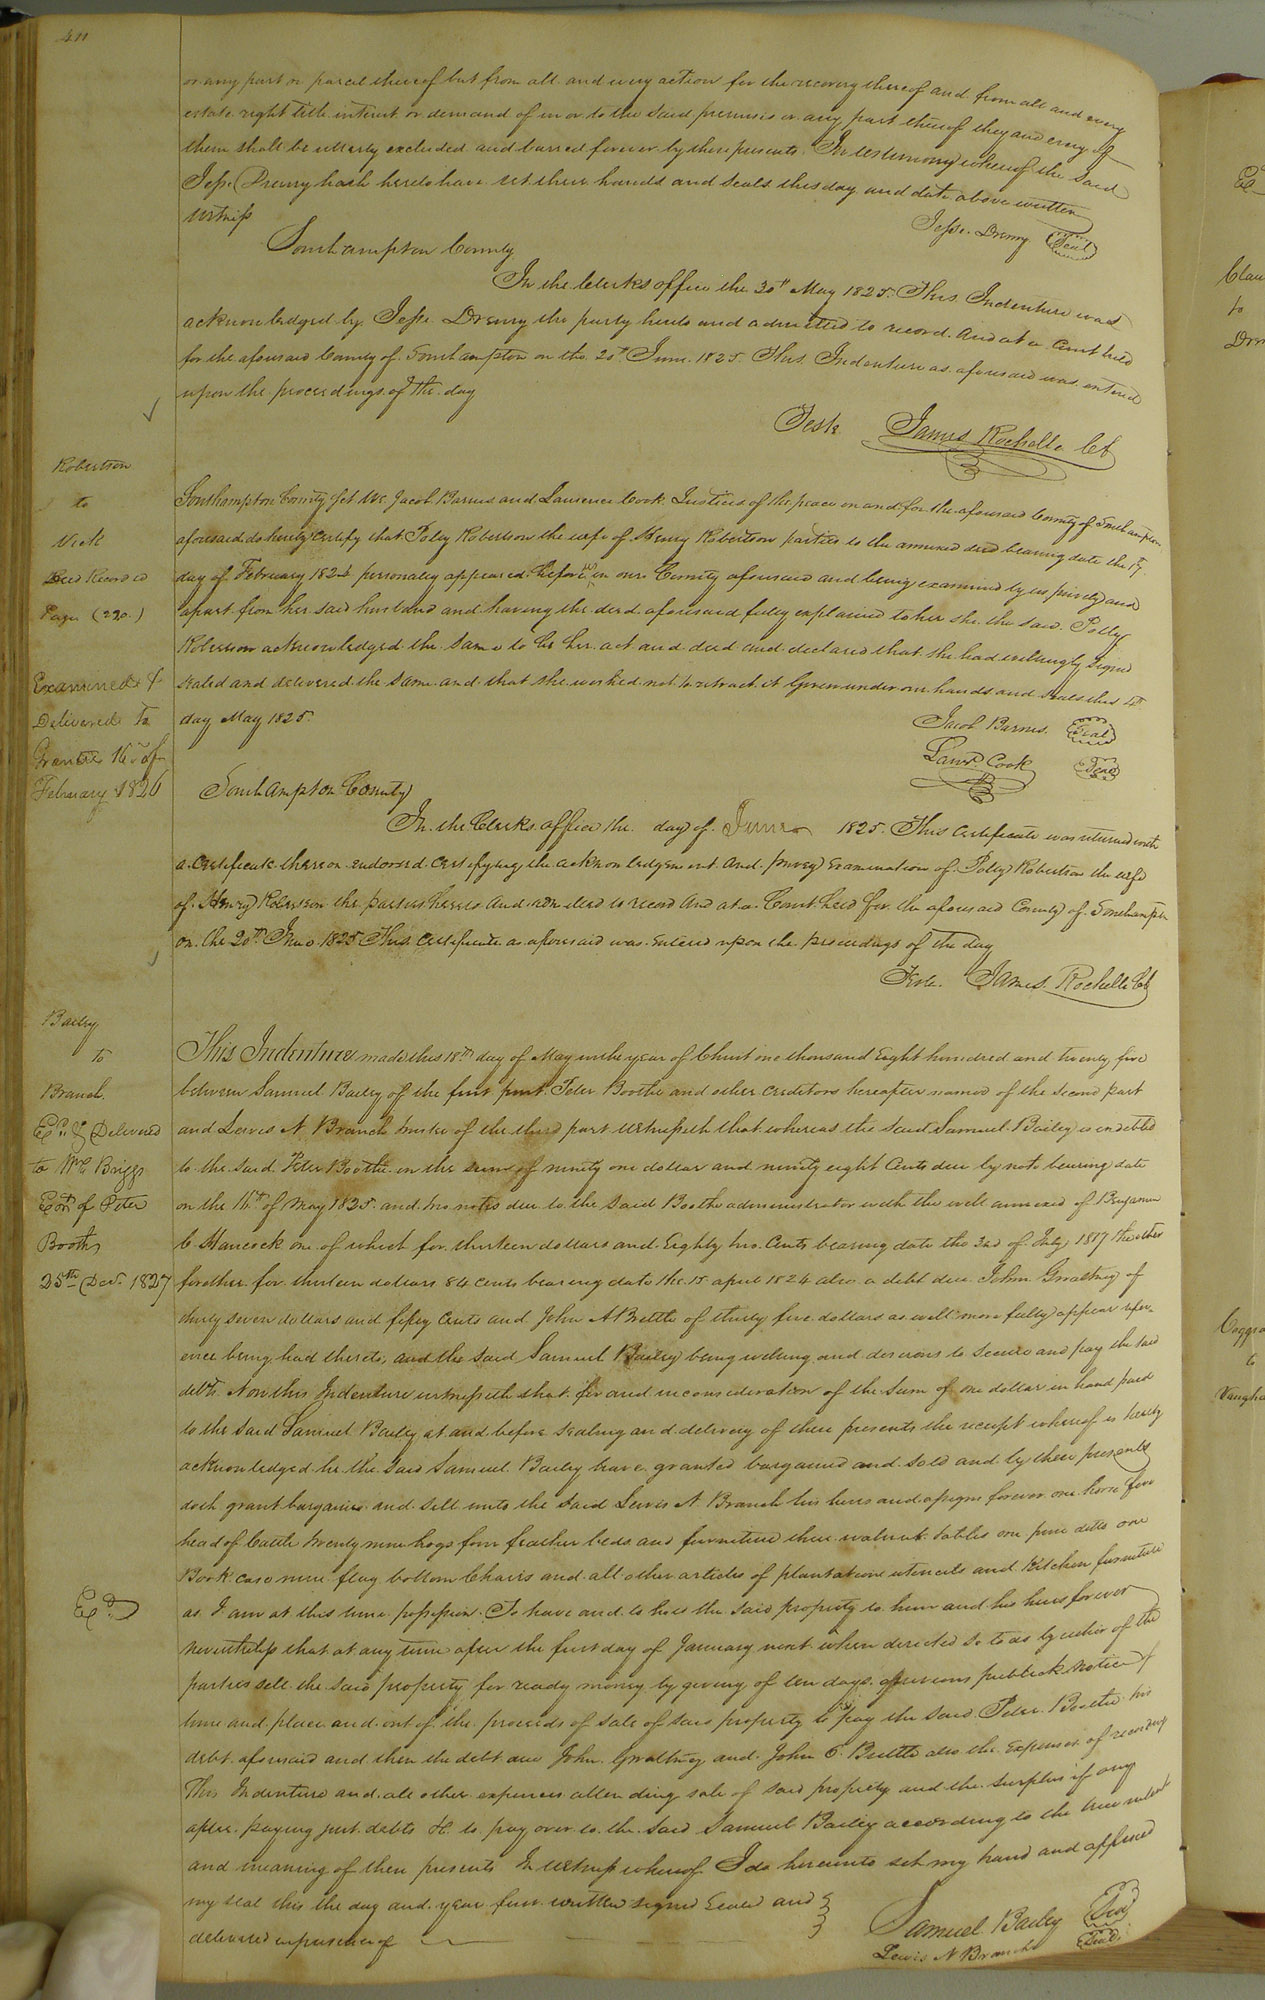 or any part or parcel thereof but from all and every action for the recovery thereof and from all and every
estate right title interest or demand of in or to the said premises or any part thereof they and every of
them shall be utterly excluded and barred forever by these presents. In testimony whereof the said
Jesse Drewry hath hereto have set their hands and seals this day and date above written
Witness
Jesse Drewry Seal
Southampton County
In the Clerks office the 30th May 1825. This Indenture was
acknowledged by Jesse Drewry the party hereto and admitted to record. And at a Court held
for the aforesaid County of Southampton on the 20th June 1825. This Indenture as aforesaid was entered
upon the proceedings of the day
Teste James Rochelle
Robertson
to
Vick
Deed Recorded
Page (220.)
Examined &
Delivered to
Grantee 16th of
February 1826
Southampton County Sct We Jacob Barnes and Lawrence Cook Justices of the peace in and for the aforesaid County of Southampton
aforesaid do hereby certify that Polly Robertson the wife of Henry Robertson parties to the annexed deed bearing date the
day of February 182 personally appeared before us in our County aforesaid and being examined by us privily and
apart from her said husband and having the deed aforesaid fully explained to her she the said Polly
Robertson acknowledged the same to be her act and deed and declared that she had willingly signed
sealed and delivered the same and that she wished not to retract it Given under our hands and seals this
day May 1825.
Jacob Barnes Seal
Lawr. Cook Seal
Southampton County
In the Clerks office the day of June 1825. This Certificate was returned with
a Certificate thereon endorsed certifying the acknowledgement and privy Examination of Polly Robertson the wife
of Henry Robertson the parties hereto and admitted to record And at a Court held for the aforesaid County of Southampton
on the 20th June 1825 This Certificate as aforesaid was entered upon the proceedings of the day
Teste. James Rochelle
Bailey
to
Branch.
Exd. & Delivered
to Wm Briggs
Exor of Peter
Booth
25th Decr. 1827
This Indenture made this 18th day of May in the year of Christ one thousand Eight hundred and twenty five
between Samuel Bailey of the first part Peter Boothe and other creditors hereafter named of the second part
and Lewis N Branch trustee of the third part Witnesseth that whereas the said Samuel Bailey is indebted
to the said Peter Boothe in the sum of ninety one dollar and ninety eight Cents due by note bearing date
on the 16th of May 1825 and two notes due to the said Boothe administrator with the will annexed of Benjamin
C Hancock one of which for thirteen dollars and Eighty two Cents bearing date the 2nd of July 1817 the other
for other for thirteen dollars 84 cents bearing date the 15 april 1824 also a debt due John Gwaltney of
thirty seven dollars and fifty Cents and John A Brittle of thirty five dollars as will more fully appear refer-
ence being had thereto, and the said Samuel Bailey being willing and desirous to secure and pay the said
debts. Now this Indenture witnesseth that for and in consideration of the sum of one dollar in hand paid
to the said Samuel Bailey at and before sealing and delivery of these presents the receipt whereof is hereby
acknowledged he the said Samuel Bailey have granted bargained and sold and by these presents
doth grant bargain and sell unto the said Lewis N. Branch his heirs and assigns forever one horse five
head of Cattle twenty nine hogs four feather beds and furniture three walnut tables one pine ditto one
Book case nine flag bottom Chairs and all other articles of plantation utencils and kitchen furniture
as I am at this time possession. To have and to hold the said property to him and his heirs forever
nevertheless that at any time after the first day of January next when directed so to do by either of the
parties sell the said property for ready money by giving of ten days previous publick notice of
time and place and out of the proceeds of sale of said property to pay the said Peter Boothe his
debt aforesaid and then the debt due John Gwaltney and John Brittle also the expenses of recording
This Indenture and all other expenses attending sale of said property and the surplus if any
after paying just debts &c to pay over to the said Samuel Bailey according to the true intent
and meaning of these presents In witness whereof I do hereunto set my hand and affixed
my seal this the day and year first written signed sealed and
delivered in presence of
Samuel Bailey Seal
Lewis N Branch Seal
Exd